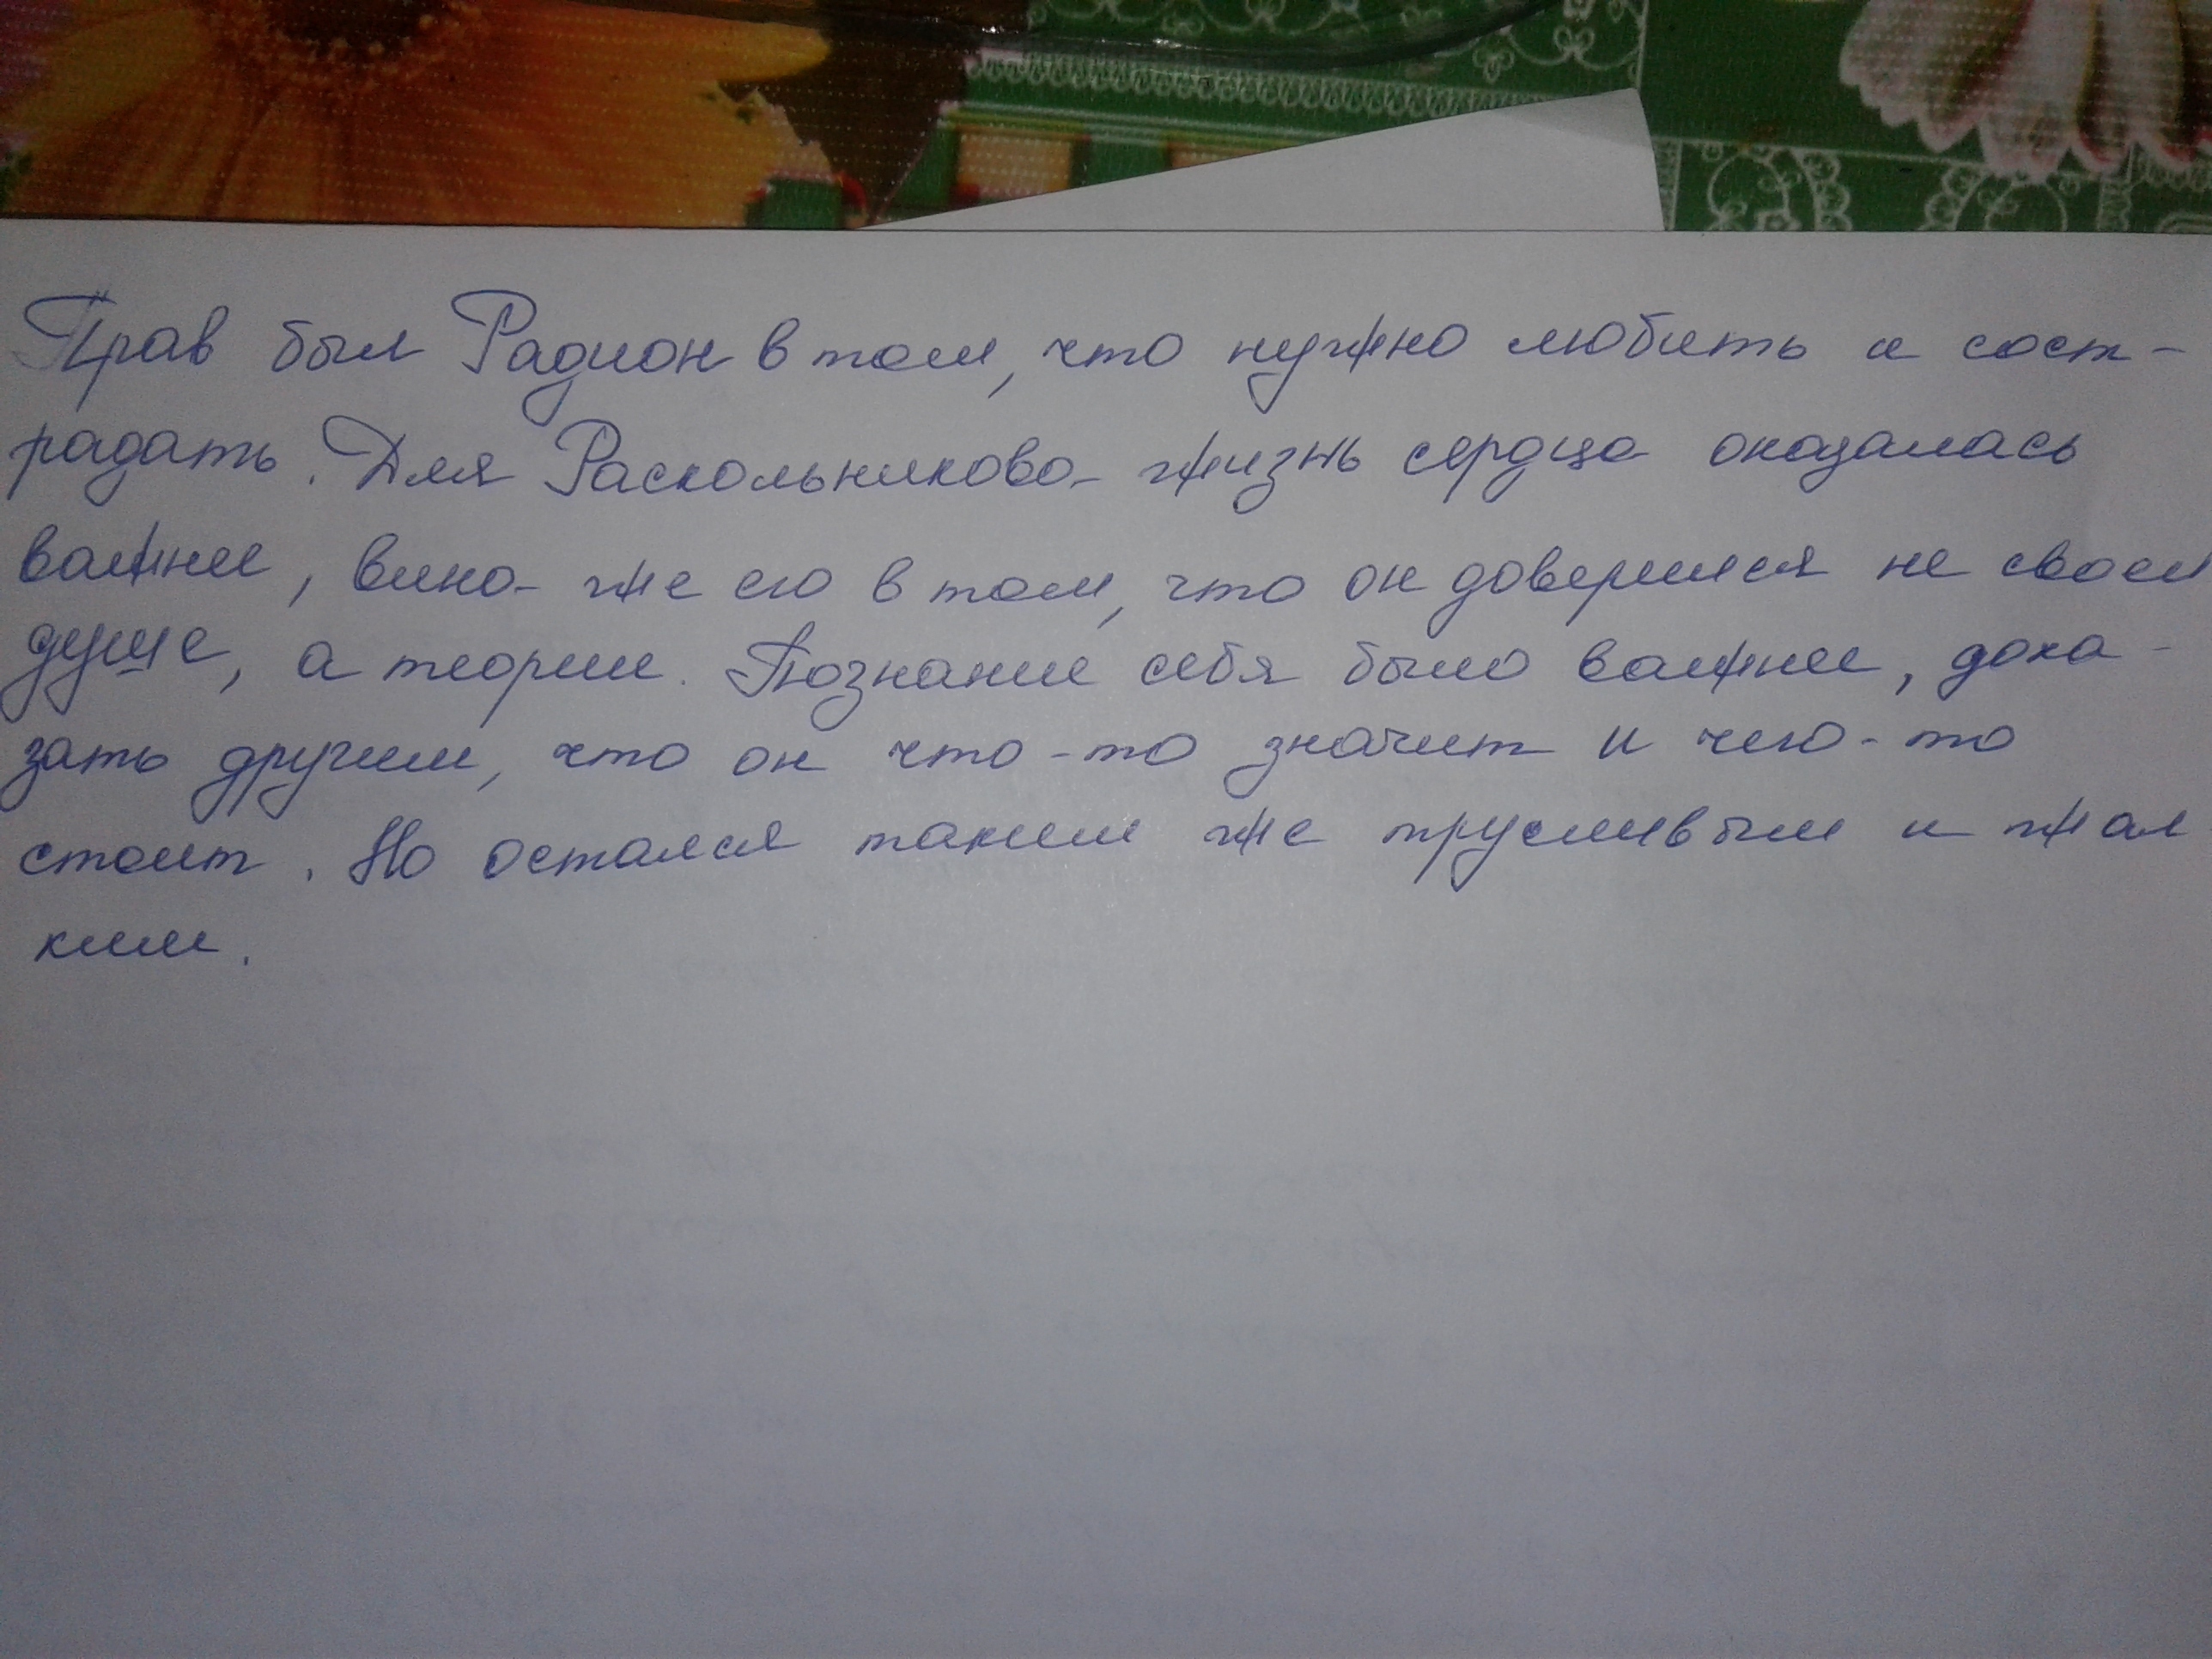 Прав был Радион в том, что нужно любить и сост-
радать. Для Раскольникова жизнь сердца оказалась
важнее, вина же его в том, что он доверился не своей
душе, а теории. Познание себя было важнее, дока-
зать другим, что он что-то значит и чего-то
стоит. Но остался таким же трусливым и жал
ким.